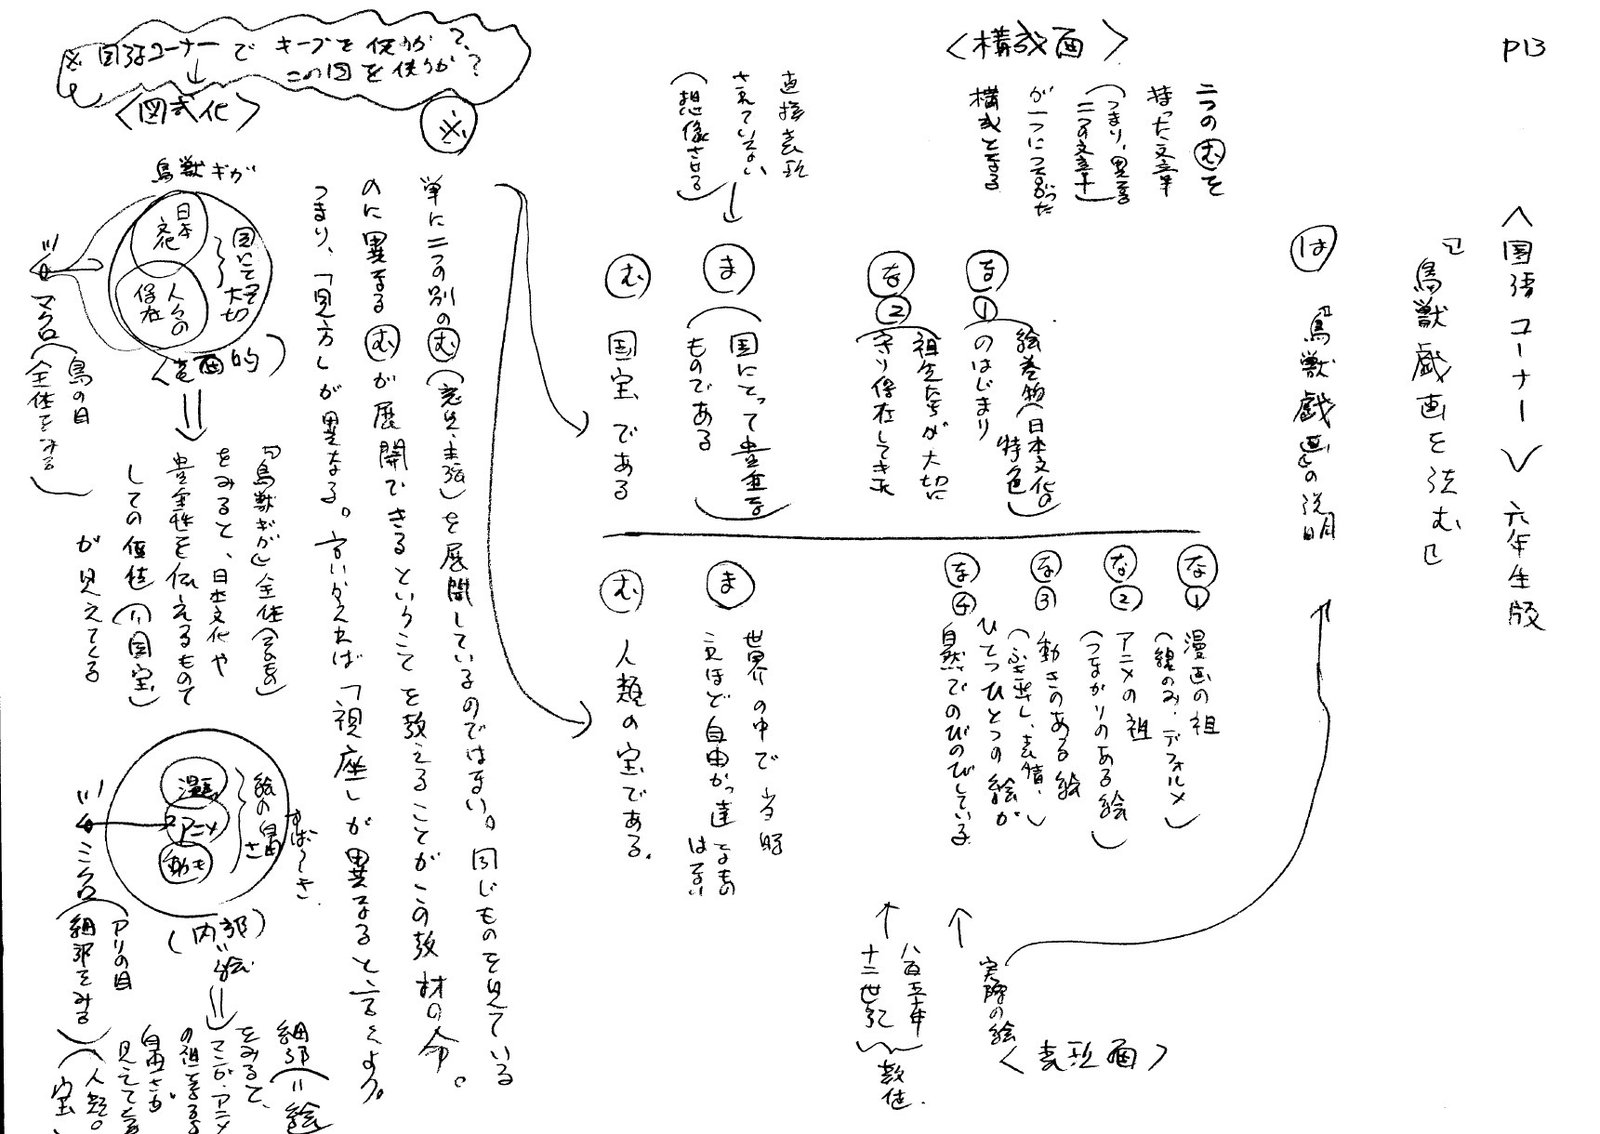 P13
〈国語コーナー〉六年生版
『鳥獣戯画を読む』
は 『鳥獣戯画』の説明
〈構成面〉
二つのむを
持った文章
(つまり、異なる
二つの文章)
が一つにつながった
構成となる
な① 絵巻物(日本文化の
特色)
のはじまり
な② 祖先たちが大切に
守り保存してきた
直接表現
されていない
(想像させる)
ま (国にとって貴重な
ものである)
む 国宝である
な① 漫画の祖
(線のみ・デフォルメ)
な② アニメの祖
(つながりのある絵)
な③ 動きのある絵
(ふき出し、表情・)
な④ ひとつひとつの絵が
自然でのびのびしている
ま 世界の中で当時
これほど自由かっ達なもの
はない
む 人類の宝である。
実際の絵
八百五十年
十二世紀
数値
〈表現面〉
※
単に二つの別のむ(意見・主張)を展開しているのではない。同じものを見ている
のに異なるむが展開できるということを教えることがこの教材の命。
つまり、「見方」が異なる。言いかえれば「視座」が異なると言えよう。
※国語コーナーでキープを使うか?
この図を使うか?
〈図式化〉
鳥獣ギガ
日本
文化
人々の
保存
国にとって
大切
(全面的)
マクロ
鳥の目
(全体をみる)
『鳥獣ギガ』全体(全面)
をみると、日本文化や
貴重性を伝えるものと
しての価値(=国宝)
が見えてくる
漫画
アニメ
動き
絵の自由さ
すばらしさ
(内部)
=絵
ミクロ
アリの目
(細部をみる)
細部(=絵
をみると、
マンガ・アニメ
の祖となる
自由さが
見えてくる
(人類の
宝)